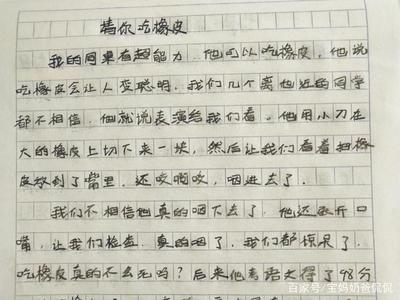 请你吃橡皮
我的同桌有超能力,他可以吃橡皮,他说
吃橡皮会让人变聪明,我们几个离他近的同学
都不相信,他就说表演给我们看。他用小刀在
大的橡皮上切下来一块,然后让我们看着把橡
皮放到了嘴里,还咬啊咬,咽进去了。
我们不相信他真的咽下去了,他还张开口
嘴,让我们检查,真的咽了,我们都惊呆了,
吃橡皮真的不会死吗?后来他考语文得了98分
百家号/宝妈奶爸侃侃